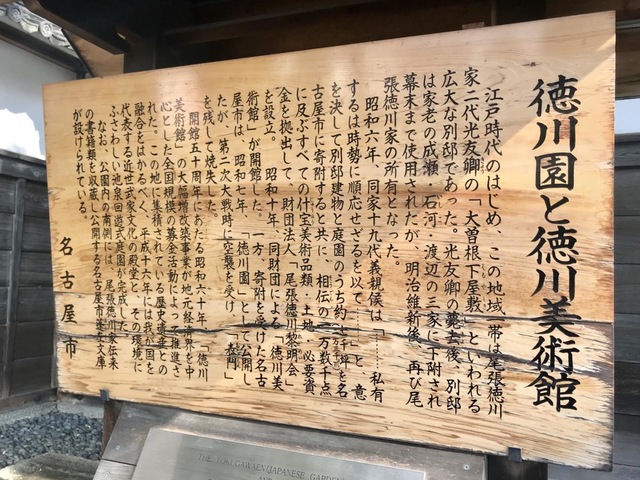 徳川園と徳川美術館
江戸時代のはじめ、この地域一帯は尾張徳川
家二代光友卿の「大曽根下屋敷」といわれる
広大な別邸であった。光友卿の薨去後、別邸
は家老の成瀬・石河・渡辺の三家に下附され
幕末まで使用されたが、明治維新後、再び尾
張徳川家の所有となった。
昭和六年、同家十九代義親侯は「……私有
するは時勢に順応せざるを以て……」と、意
を決して別邸建物と庭園のうち約七千坪を名
古屋市に寄附すると共に、相伝の一万数千点
に及ぶすべての什宝美術品類・土地・必要資
金を拠出して、財団法人「尾張徳川黎明会」
を設立。昭和十年、同財団による「徳川美
術館」が開館した。一方、寄附を受けた名古
屋市は、昭和七年、「徳川園」として公開し
たが、第二次大戦時に空襲を受け、「表門」
を残して焼失した。
開館五十周年にあたる昭和六十年、「徳川
美術館」の大幅増改築事業が地元経済界を中
心とした全国規模の募金活動によって推進さ
れた。この地に集積されている歴史遺産との
融合をはかるべく、平成十六年には我が国を
代表する近世武家文化の殿堂と、その環境に
ふさわしい池泉回遊式庭園が完成した。
なお、公園内の南側には、尾張徳川家伝来
の書籍類を収蔵し公開する名古屋市蓬左文庫
が設けられている。
名古屋市
THE TOKUGAWAEN(JAPANESE GARDEN